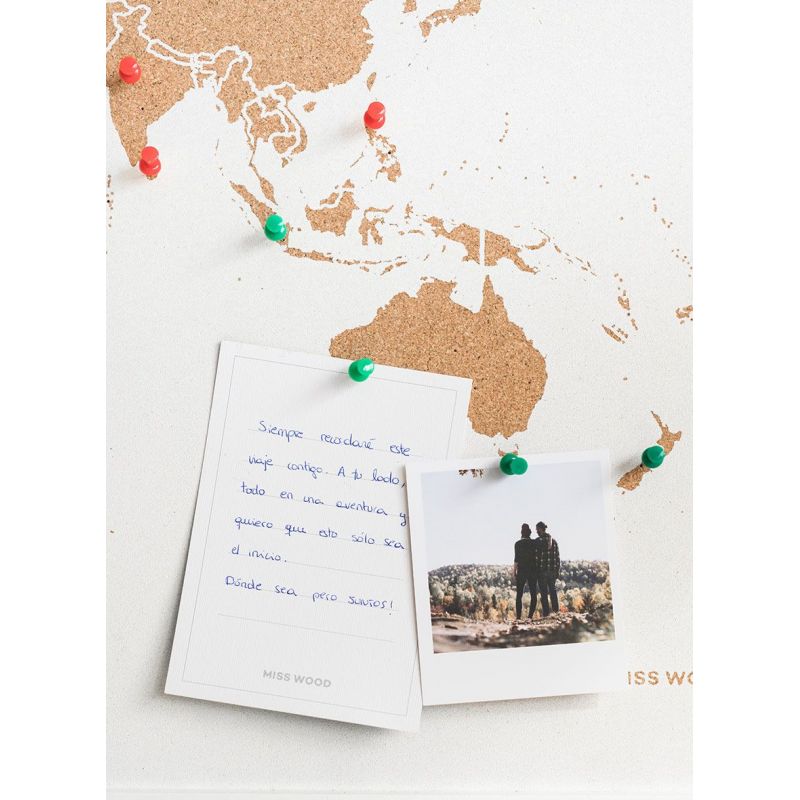 Siempre recordaré este
viaje contigo. A tu lado,
todo en una aventura y
quiero que esto sólo sea
el inicio.
Dónde sea pero juntos!
MISS WOOD
ISS WO